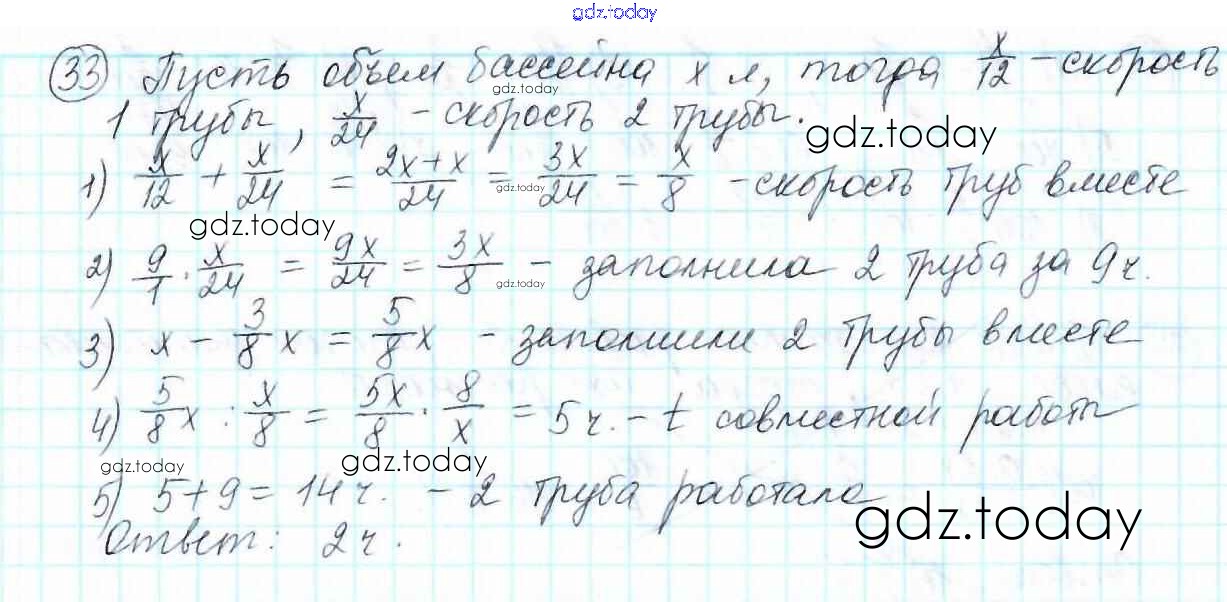 gdz.today
33 Пусть объем бассейна x л, тогда x/12 - скорость
gdz.today
1 трубы, x/24 - скорость 2 трубы.
gdz.today
1) x/12 + x/24 = 2x+x/24 = 3x/24 = x/8 - скорость труб вместе
gdz.today
gdz.today
2) 9/1 · x/24 = 9x/24 = 3x/8 - заполнила 2 труба за 9ч.
gdz.today
3) x - 3/8 x = 5/8 x - заполнили 2 трубы вместе
4) 5/8 x : x/8 = 5x/8 · 8/x = 5ч. - t совместной работы
gdz.today
gdz.today
5) 5+9 = 14ч. - 2 труба работала
gdz.today
Ответ: 2ч.